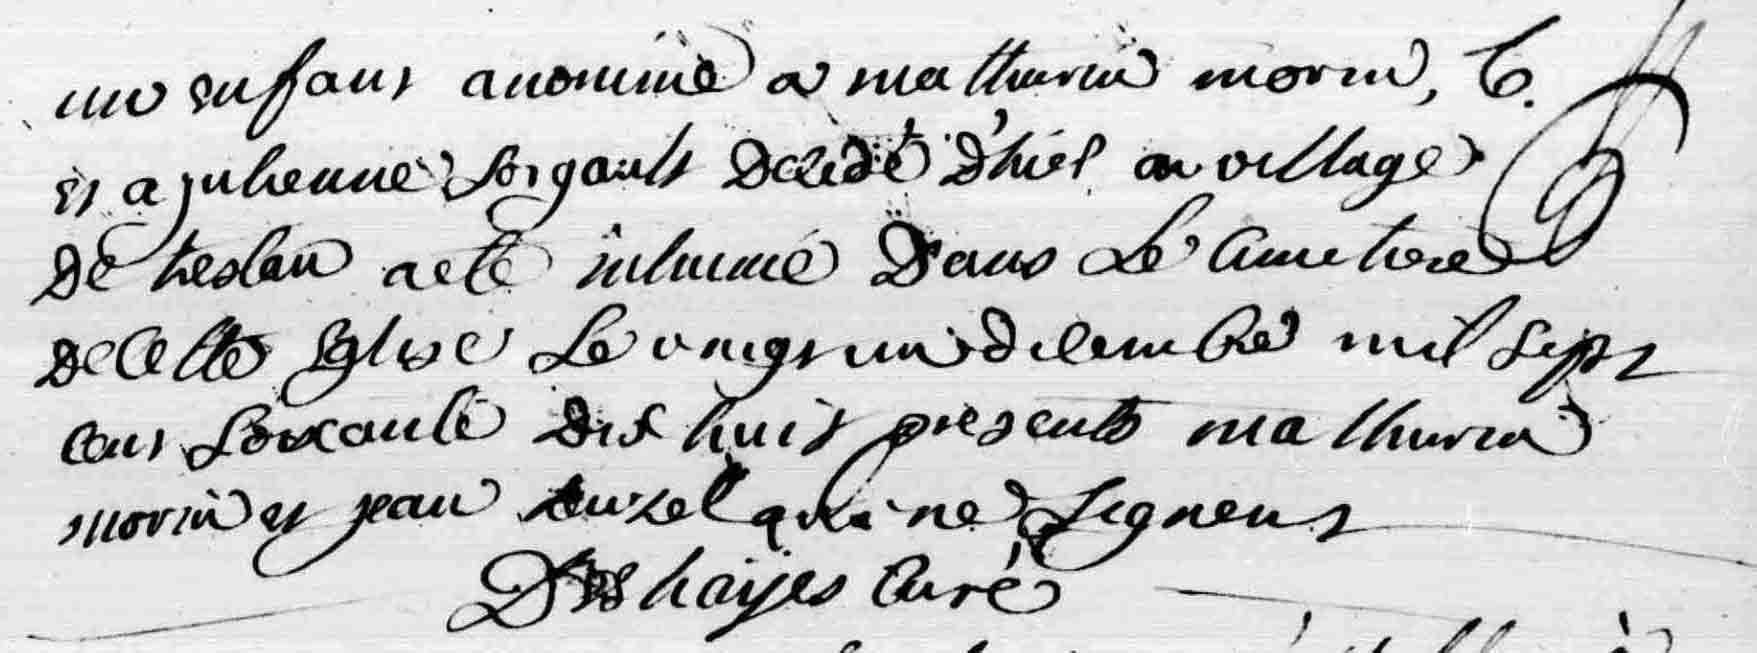 un enfant anonime a mathurin morin,
et a julienne Sorgault decédé d'hiel au village
de treslan a eté inhumé dans Le Cimetiere
de Cette Eglise Le vingt un decembre mil sept
cent Soixante dix huit presents mathurin
morin et jean qui ne Signent
Deshayes Curé